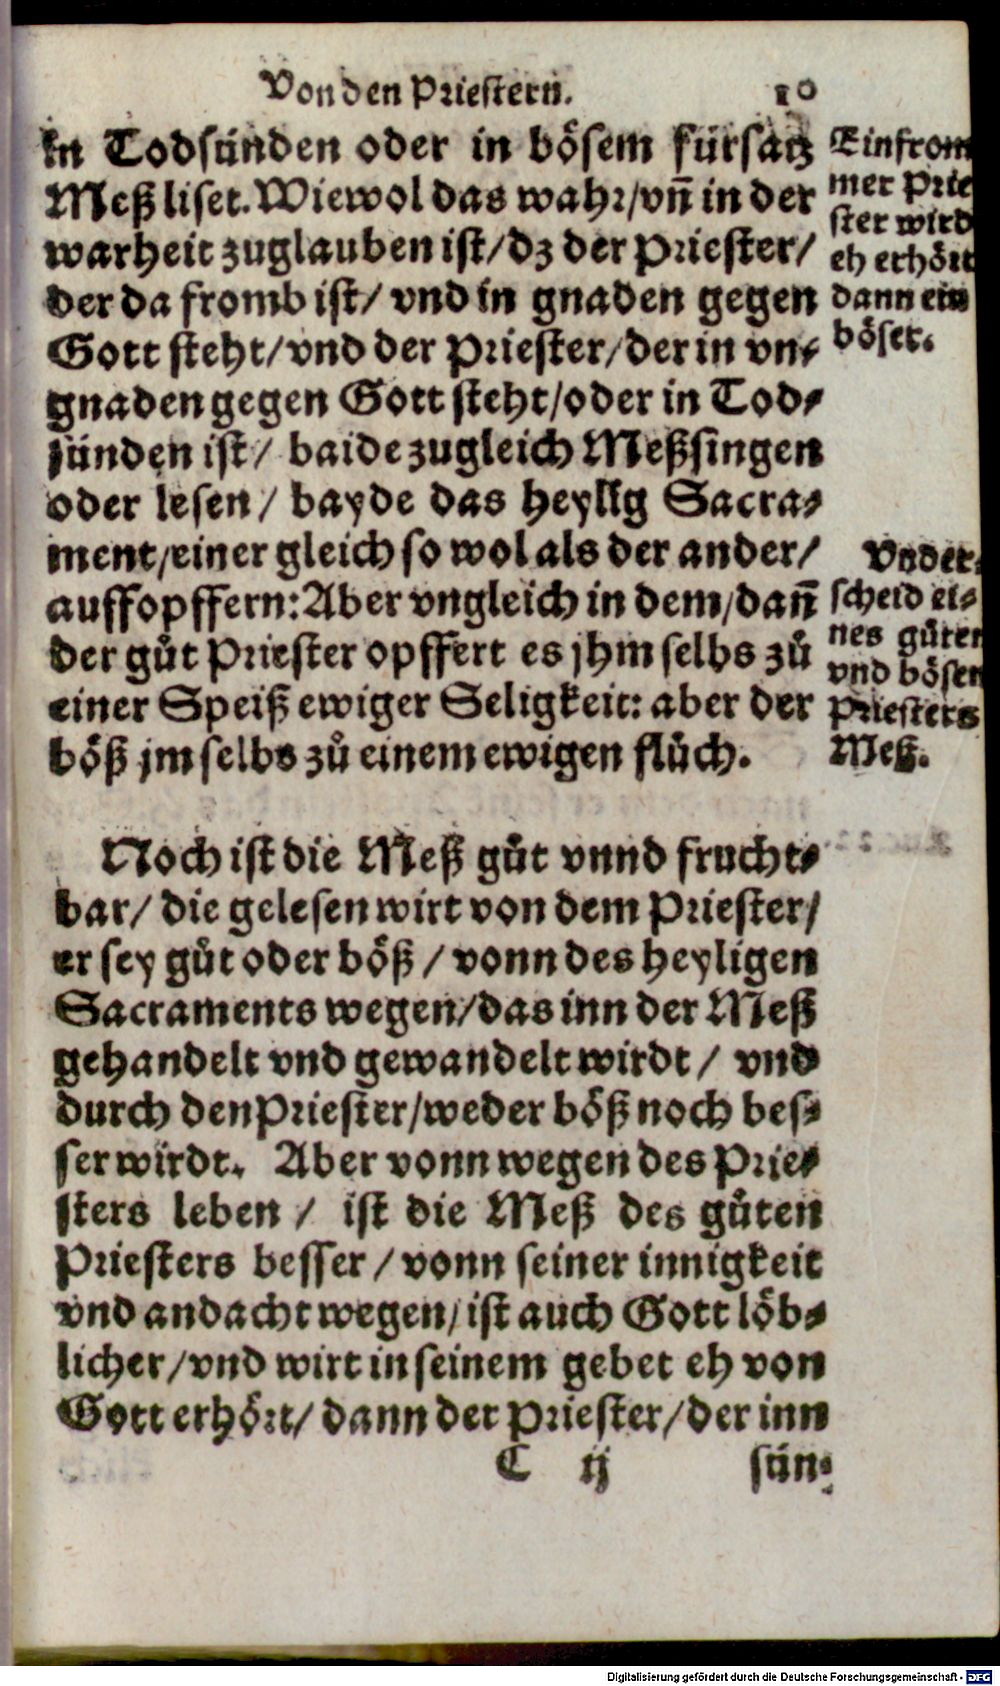 Von den Priestern. 10
in Todsünden oder in bösem fürsatz
Meß liset. Wiewol das wahr/vñ in der
warheit zuglauben ist/dz der Priester/
der da fromb ist/ vnd in gnaden gegen
Gott steht/vnd der Priester/der in vn⸗
gnaden gegen Gott steht/oder in Tod⸗
sünden ist/ baide zugleich Meßsingen
oder lesen/ bayde das heyllg Sacra⸗
ment/einer gleich so wol als der ander/
auffopffern: Aber vngleich in dem/dañ
der gůt Priester opffert es jhm selbs zů
einer Speiß ewiger Seligkeit: aber der
böß jm selbs zů einem ewigen flůch.
Ein from
mer Prie
ster wird
eh erhört
dann ein
böser.
Vnder⸗
scheid ei⸗
nes gůten
vnd bösen
Priesters
Meß.
Noch ist die Meß gůt vnnd frucht⸗
bar/ die gelesen wirt von dem Priester/
er sey gůt oder böß/ vonn des heyligen
Sacraments wegen/das inn der Meß
gehandelt vnd gewandelt wirdt/ vnd
durch den Priester/weder böß noch bes⸗
ser wirdt. Aber vonn wegen des Prie⸗
sters leben/ ist die Meß des gůten
Priesters besser/ vonn seiner innigkeit
vnd andacht wegen/ist auch Gott löb⸗
licher/vnd wirt in seinem gebet eh von
Gott erhört/ dann der Priester/der inn
C ij sün⸗
Digitalisierung gefördert durch die Deutsche Forschungsgemeinschaft - DFG